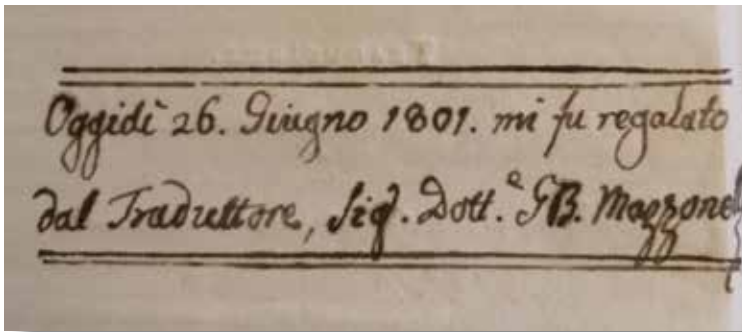 Oggidì 26. Giugno 1801. mi fu regalato
dal Traduttore, Sig. Dott.e GB. Mazzone